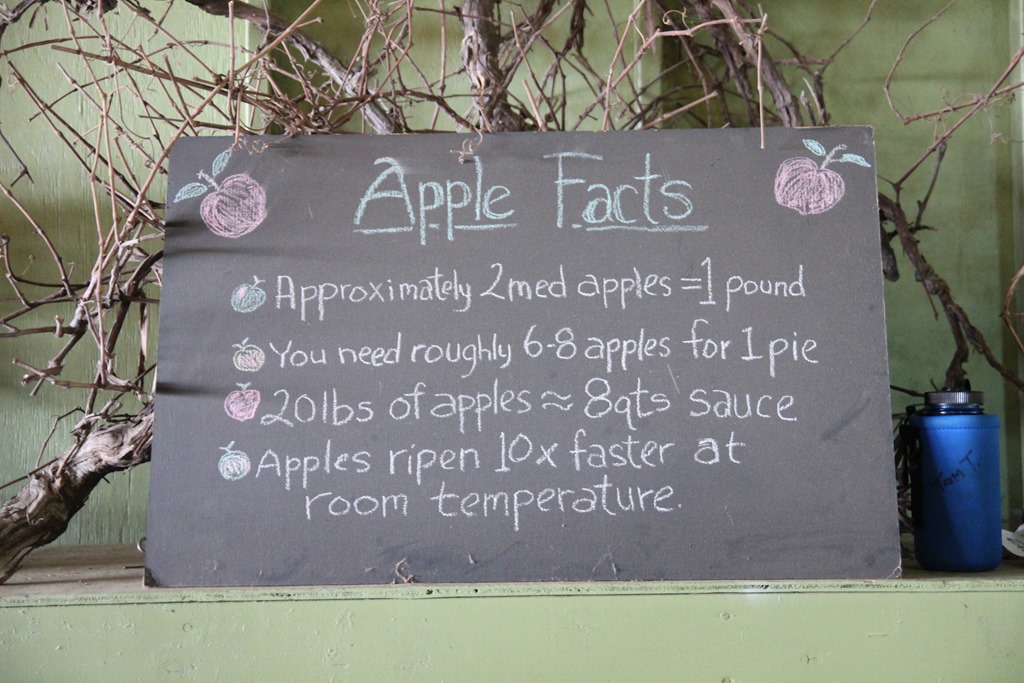 Apple Facts
Approximately 2 med apples = 1 pound
You need roughly 6-8 apples for 1 pie
20 lbs of apples ≈ 8qts sauce
Apples ripen 10x faster at
room temperature.
Tom T.